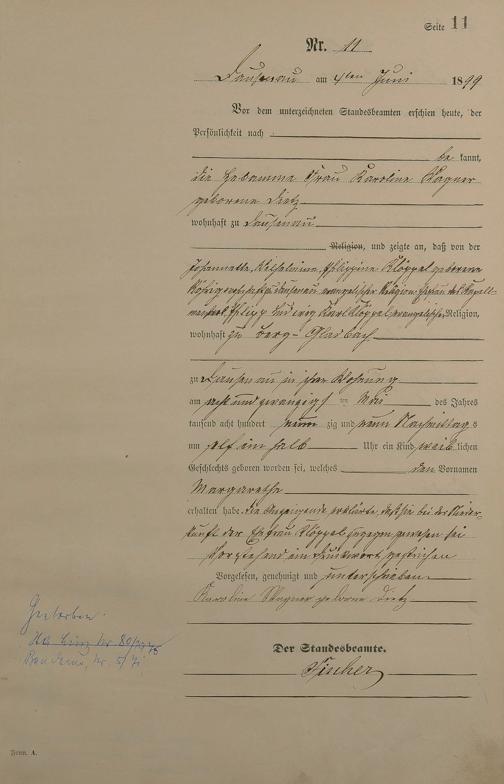 Seite 11
Nr. 11
Dausenau am 1ten Juni 1899
Vor dem unterzeichneten Standesbeamten erschien heute, der
Persönlichkeit nach
be kannt,
die Hebamme Frau Karoline Wagner
geborene Dietz
wohnhaft zu Dausenau
Religion, und zeigte an, daß von der
Johannette, Wilhelmine, Philippine Klöppel geborene
zu Dausenau evangelischer Religion, Ehefrau des
Philipp Ludwig Karl Klöppel, evangelischer Religion,
wohnhaft zu Berg-Gladbach
zu Dausenau in ihrer Wohnung
am acht und zwanzigsten Mai des Jahres
tausend acht hundert neun zig und neun Nachmittags
um elf ein halb Uhr ein Kind weib lichen
Geschlechts geboren worden sei, welches den Vornamen
Margarethe
erhalten habe. Die Anzeigende erklärte, daß sie bei der Nieder-
kunft der Ehefrau Klöppel zugegen gewesen sei
Vorstehend ein Druckwort gestrichen
Vorgelesen, genehmigt und unterschrieben
Karoline Wagner geborne Dietz
Der Standesbeamte.
Fischer
Gestorben
Nr. 5/71
Form. A.